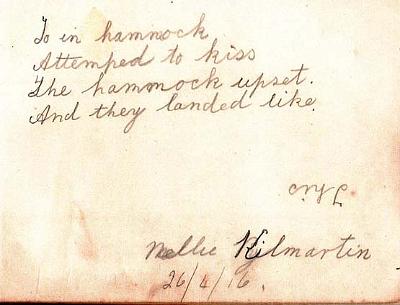 To in hammock
Attemped to kiss
The hammock upset.
And they landed like.
This
Nellie Kilmartin
26/4/16.